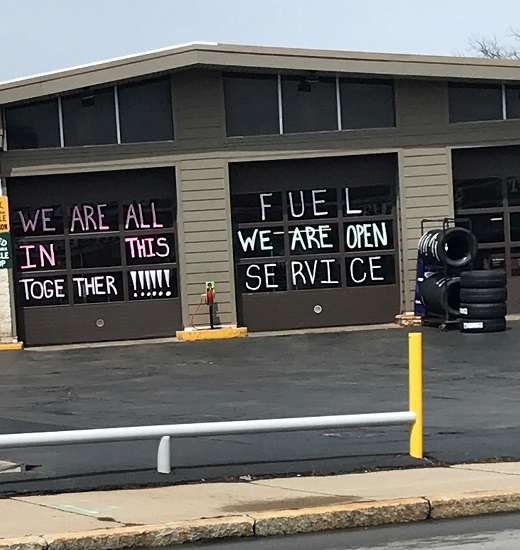 WE ARE ALL
IN THIS
TOGETHER !!!!!!
FUEL
WE ARE OPEN
SERVICE